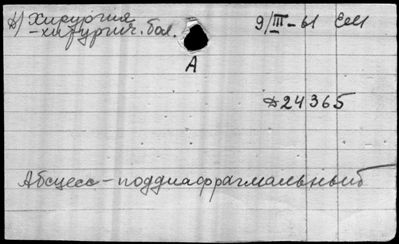 д) Хирургия 9/III-61
-хирургич. бол.
А
24365
Абсцесс - поддиафрагмальный